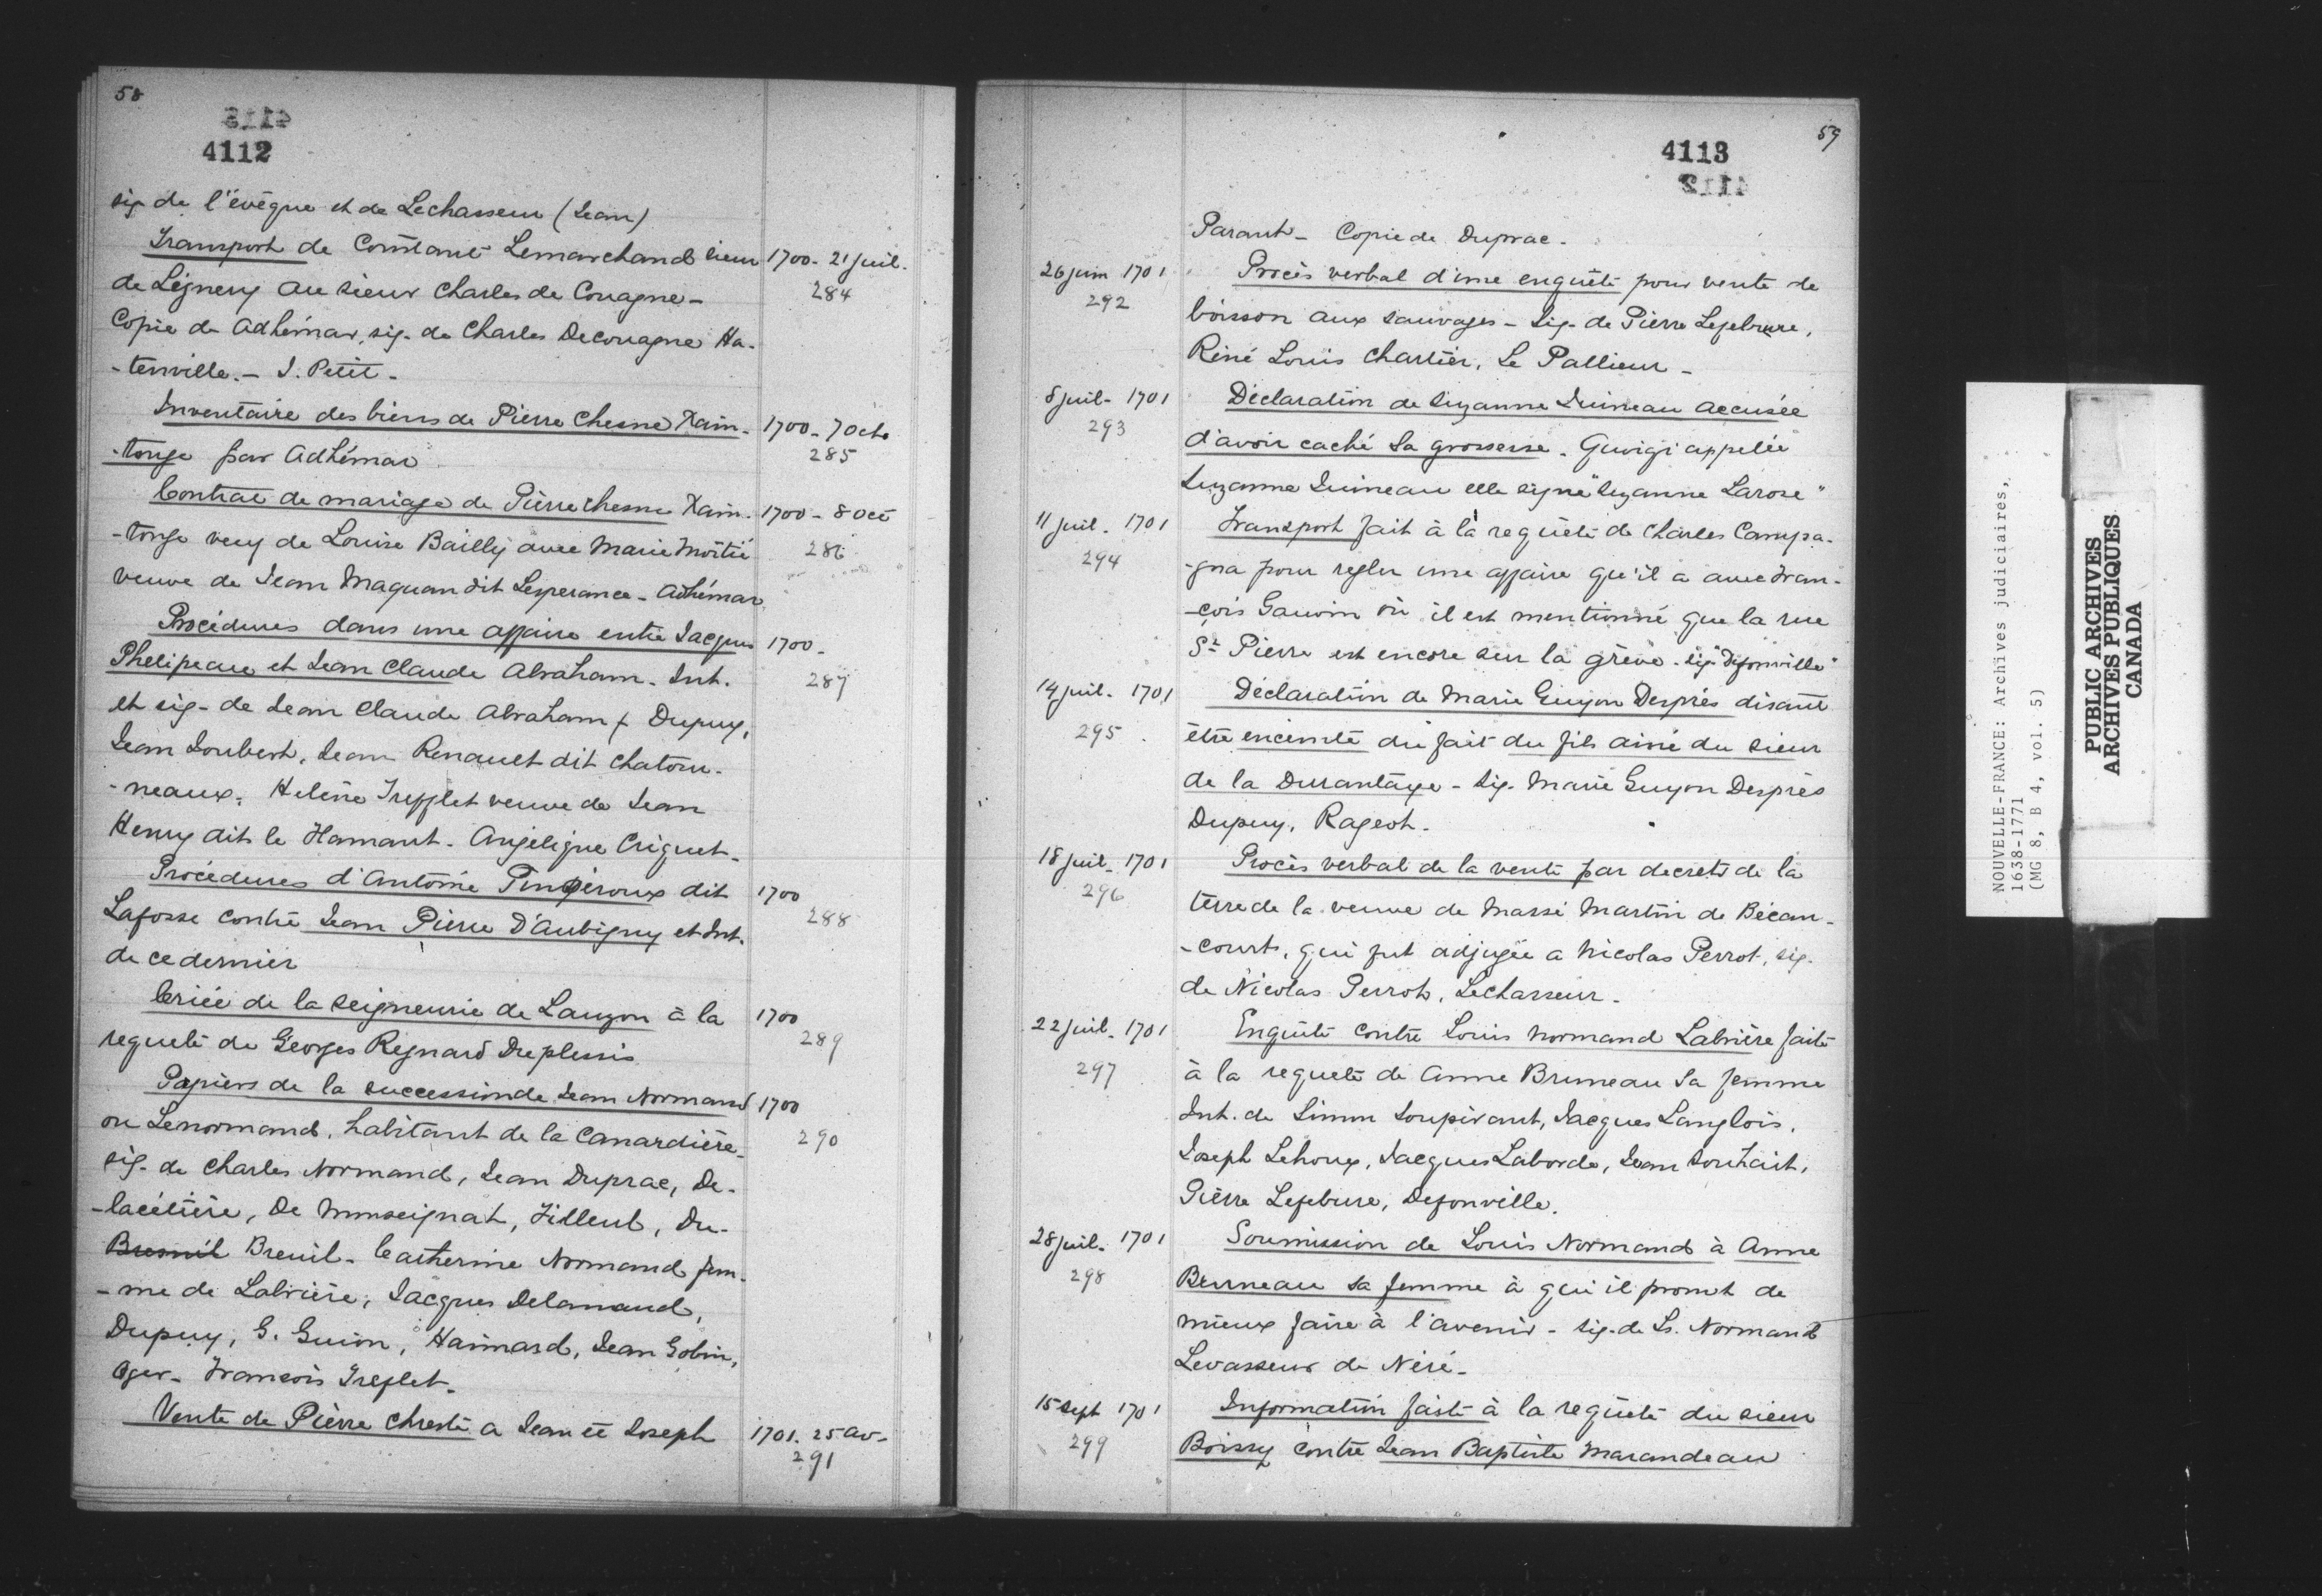 58
4112
sig. de l'évêque et de Lechasseur (Jean)
Transport de Constant Lemarchand sieur 1700 - 21 juil.
de Lignery au sieur Charles de Couagne - 284
Copie de Adhémar, sig. de Charles Decouagne Ha-
-tenville. - J. Petit -
Inventaire des biens de Pierre Chesne Xain- 1700 - 7 Octo
-tonge par Adhémar 285
Contrat de mariage de Pierre Chesne Xain- 1700 - 8 Oct
-tonge veuf de Louise Bailly avec Marie Moitié 286
veuve de Jean Magnan dit Lesperance - Adhémar
Procédures dans une affaire entre Jacques 1700 -
Phelipeau et Jean Claude Abraham. Int. 287
et sig - de Jean Claude Abraham f Dupuy,
Jean Joubert, Jean Renault dit Chatou-
-neaux, Helène Trefflet veuve de Jean
Henry dit le Hamant - Angélique Criquet -
Procédures d'Antoine Pougéroux dit 1700
Lafosse contre Jean Pierre D'Aubigny et Int. 288
de ce dernier
Criée de la seigneurie de Lauzon à la 1700
requête de Georges Regnard Duplessis 289
Papiers de la succession de Jean Normand 1700
ou Lenormand, habitant de la Canardière - 290
sig - de Charles Normand, Jean Duprac, De-
-lacétière, De Monseignat, Filleul, Du-
Bresnil Breuil - Catherine Normand fem-
-me de Labrière, Jacques Delamaud,
Dupuy, G. Guion, Haimard, Jean Gobin,
Oger - François Treflet -
Vente de Pierre Chresté a Jean et Joseph 1701. 25 av -
291
4113
59
Parant - Copie de Duprac -
26 juin 1701 Procès verbal d'une enquête pour vente de
292 boisson aux sauvages - Sig - de Pierre Lefebvre,
Réné Louis Chartier, Le Pallieur -
8 juil - 1701 Déclaration de Suzanne Juineau accusée
293 d'avoir caché sa grossesse - appelée
Suzanne Juineau elle signe "Suzanne Larose"
11 juil. 1701 Transport fait à la requête de Charles Campa-
294 -gna pour regler une affaire qu'il a avec Fran-
-çois Gauvin où il est mentionné que la rue
St Pierre est encore sur la grève - sig "Defonville"
14 juil. 1701 Déclaration de Marie Guyon Desprès disant
295 être enceinte du fait du fils ainé du sieur
de la Durantaye - Sig. Marie Guyon Desprès
Dupuy, Rageot.
18 juil - 1701 Procès verbal de la vente par decrets de la
296 terre de la veuve de Massé Martin de Bécan-
-court, qui fut adjugée a Nicolas Perrot, sig.
de Nicolas Perrot, Lechasseur.
22 juil - 1701 Enquête contre Louis Normand Labrière faite
297 à la requête de Anne Bruneau sa femme
Int. de Simon Soupirant, Jacques Langlois,
Joseph Lehoux, Jacques Laborde, Jean Souhait,
Pierre Lefebvre, Defonville.
28 juil - 1701 Soumission de Louis Normand à Anne
298 Bruneau sa femme à qui il promet de
mieux faire à l'avenir - sig. de Ls. Normand
Levasseur de Néré -
15 Sept 1701 Information faite à la requête du sieur
299 Boissy contre Jean Baptiste Marandeau
NOUVELLE-FRANCE: Archives judiciaires,
1638-1771
(MG 8, B 4, vol. 5)
PUBLIC ARCHIVES
ARCHIVES PUBLIQUES
CANADA